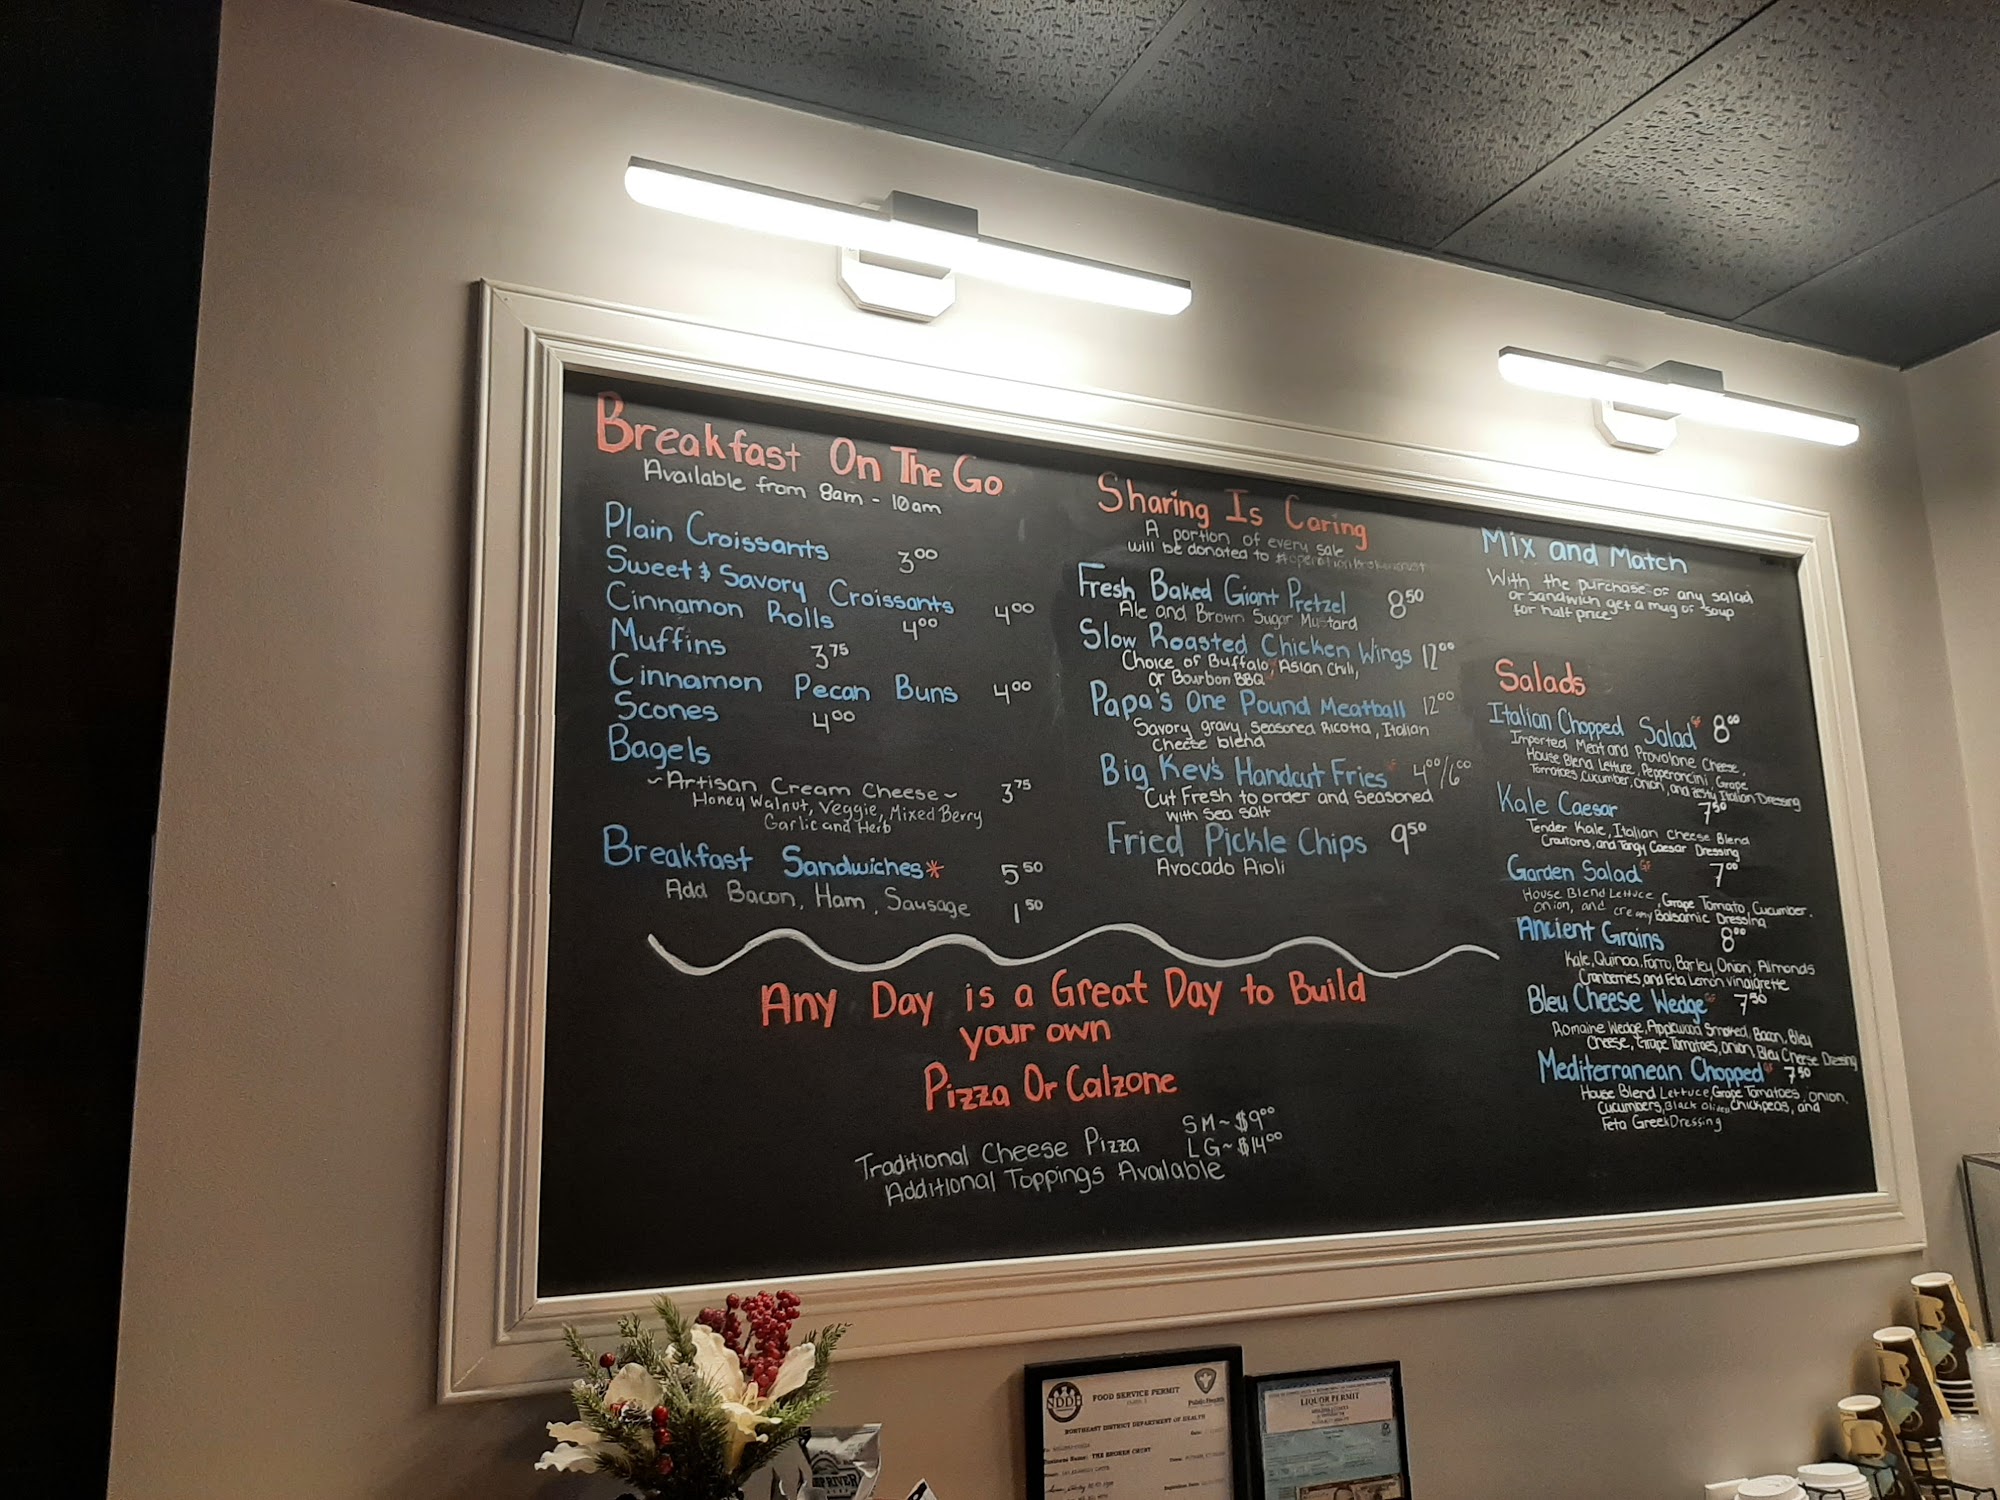 Breakfast On The Go
Available from 8am - 10am
Plain Croissants 3.00
Sweet & Savory Croissants 4.00
Cinnamon Rolls 4.00
Muffins 3.75
Cinnamon Pecan Buns 4.00
Scones 4.00
Bagels
~Artisan Cream Cheese~ 3.75
Honey Walnut, Veggie, Mixed Berry
Garlic and Herb
Breakfast Sandwiches* 5.50
Add Bacon, Ham, Sausage 1.50
Sharing Is Caring
A portion of every sale
will be donated to
Fresh Baked Giant Pretzel 8.50
Ale and Brown Sugar Mustard
Slow Roasted Chicken Wings 12.00
Choice of Buffalo, Asian Chili,
or Bourbon BBQ
Papa's One Pound Meatball 12.00
Savory gravy, Seasoned Ricotta, Italian
Cheese blend
Big Kev's Handcut Fries 4.00/6.00
Cut Fresh to order and Seasoned
with Sea Salt
Fried Pickle Chips 9.50
Avocado Aioli
Mix and Match
With the purchase of any salad
or sandwich get a mug of soup
for half price
Salads
Italian Chopped Salad GF 8.00
Imported Meat and Provolone Cheese,
House Blend Lettuce, Pepperoncini, Grape
Tomatoes, Cucumber, Onion, and Zesty Italian Dressing
Kale Caesar 7.50
Tender Kale, Italian Cheese Blend
Croutons, and Tangy Caesar Dressing
Garden Salad GF 7.00
House Blend Lettuce, Grape Tomato, Cucumber,
Onion, and creamy Balsamic Dressing
Ancient Grains 8.00
Kale, Quinoa, Farro, Barley, Onion, Almonds
Cranberries, and Feta Lemon Vinaigrette
Bleu Cheese Wedge GF 7.50
Romaine Wedge, Applewood Smoked, Bacon, Bleu
Cheese, Grape Tomatoes, Onion, Bleu Cheese Dressing
Mediterranean Chopped GF 7.50
House Blend Lettuce, Grape Tomatoes, Onion,
Cucumbers, Black Olives, Chickpeas, and
Feta Greek Dressing
Any Day is a Great Day to Build
your own
Pizza Or Calzone
SM~$9.00
Traditional Cheese Pizza LG~$14.00
Additional Toppings Available
NDDH
FOOD SERVICE PERMIT
Public Health
NORTHEAST DISTRICT DEPARTMENT OF HEALTH
Business Name: THE BROKEN CRUST
LIQUOR PERMIT
RIVER